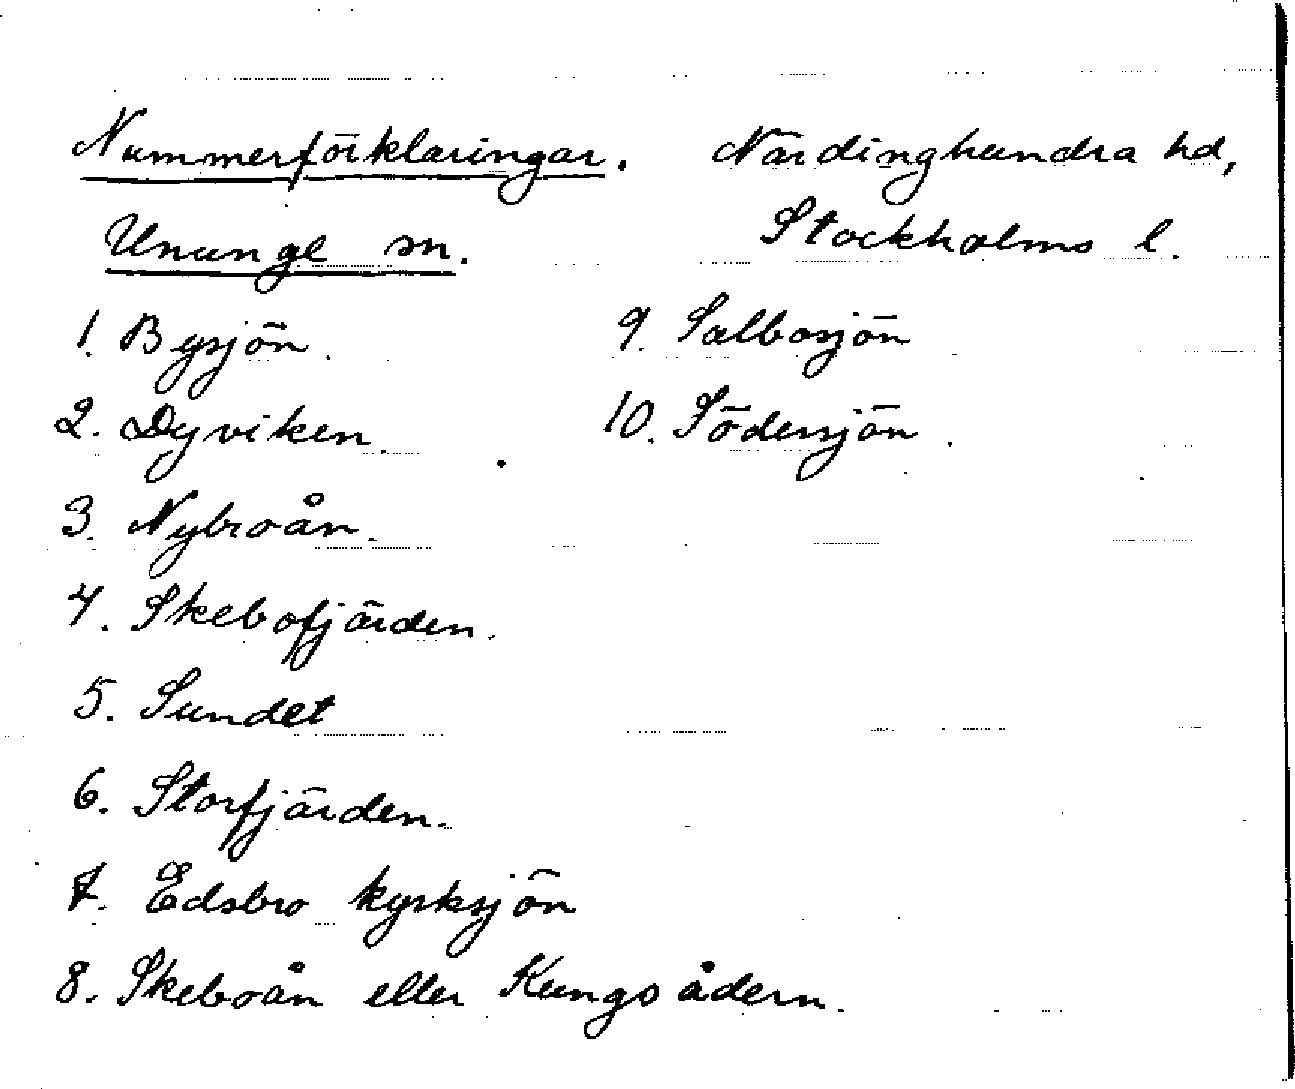 Nummerförklaringar. Närdinghundra hd,
Ununge sn. Stockholms l.
1. Bysjön.
2. Dyviken.
3. Nybroån.
4. Skebofjärden.
5. Sundet
6. Storfjärden.
7. Edsbro kyrksjön
8. Skeboån eller Kungsådern.
9. Salbosjön
10. Södersjön.